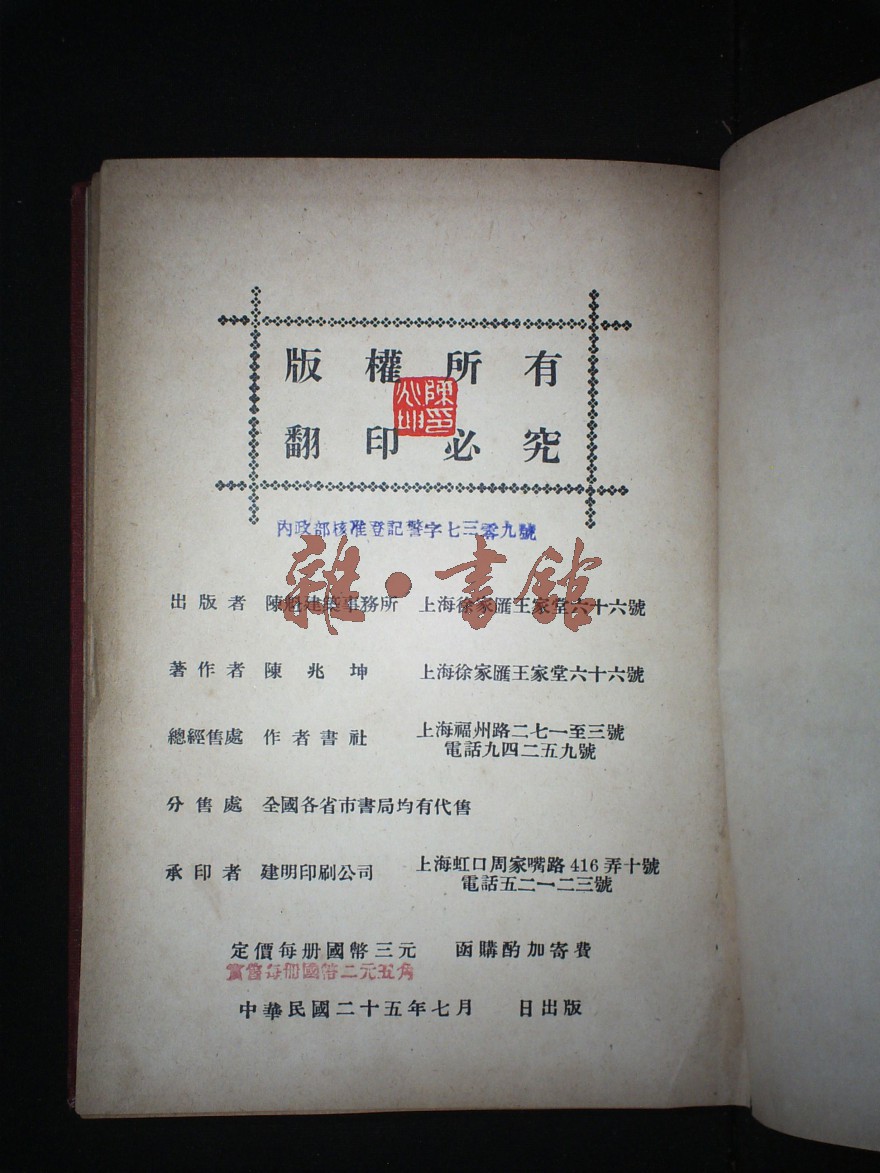 版權所有
翻印必究
內政部核准登記警字七三零九號
雜·書館
出版者 陳魁建築事務所 上海徐家匯王家堂六十六號
著作者 陳兆坤 上海徐家匯王家堂六十六號
總經售處 作者書社 上海福州路二七一至三號
電話九四二五九號
分售處 全國各省市書局均有代售
承印者 建明印刷公司 上海虹口周家嘴路416弄十號
電話五二一二三號
定價每册國幣三元 函購酌加寄費
實售每册國幣二元五角
中華民國二十五年七月 日出版